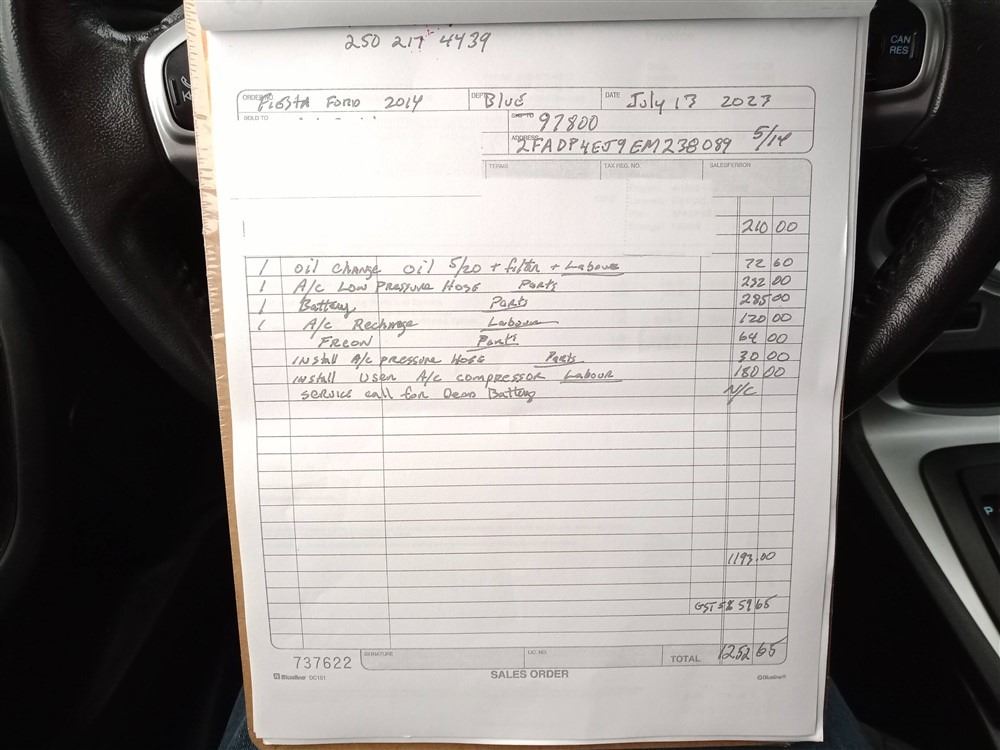 250 217 4439
CAN
RES
ORDER NO. Fiesta Ford 2014 DEPT. Blue DATE July 13 2023
SOLD TO SHIP TO 97800
ADDRESS 2FADP4EJ9EM238089 5/14
TERMS TAX REG. NO. SALESPERSON
210 00
1 oil change oil 5/20 + filter + Labour 72 60
1 A/c Low Pressure Hose Parts 232 00
1 Battery Parts 285 00
1 A/c Recharge Labour 120 00
Freon Parts 64 00
install A/c pressure Hose Parts 30 00
install User A/c compressor Labour 180 00
service call for Dead Battery N/C
1193.00
GST 5% 59 65
737622 SIGNATURE LIC. NO. TOTAL 1252 65
Blueline DC101 SALES ORDER ©Blueline®
P